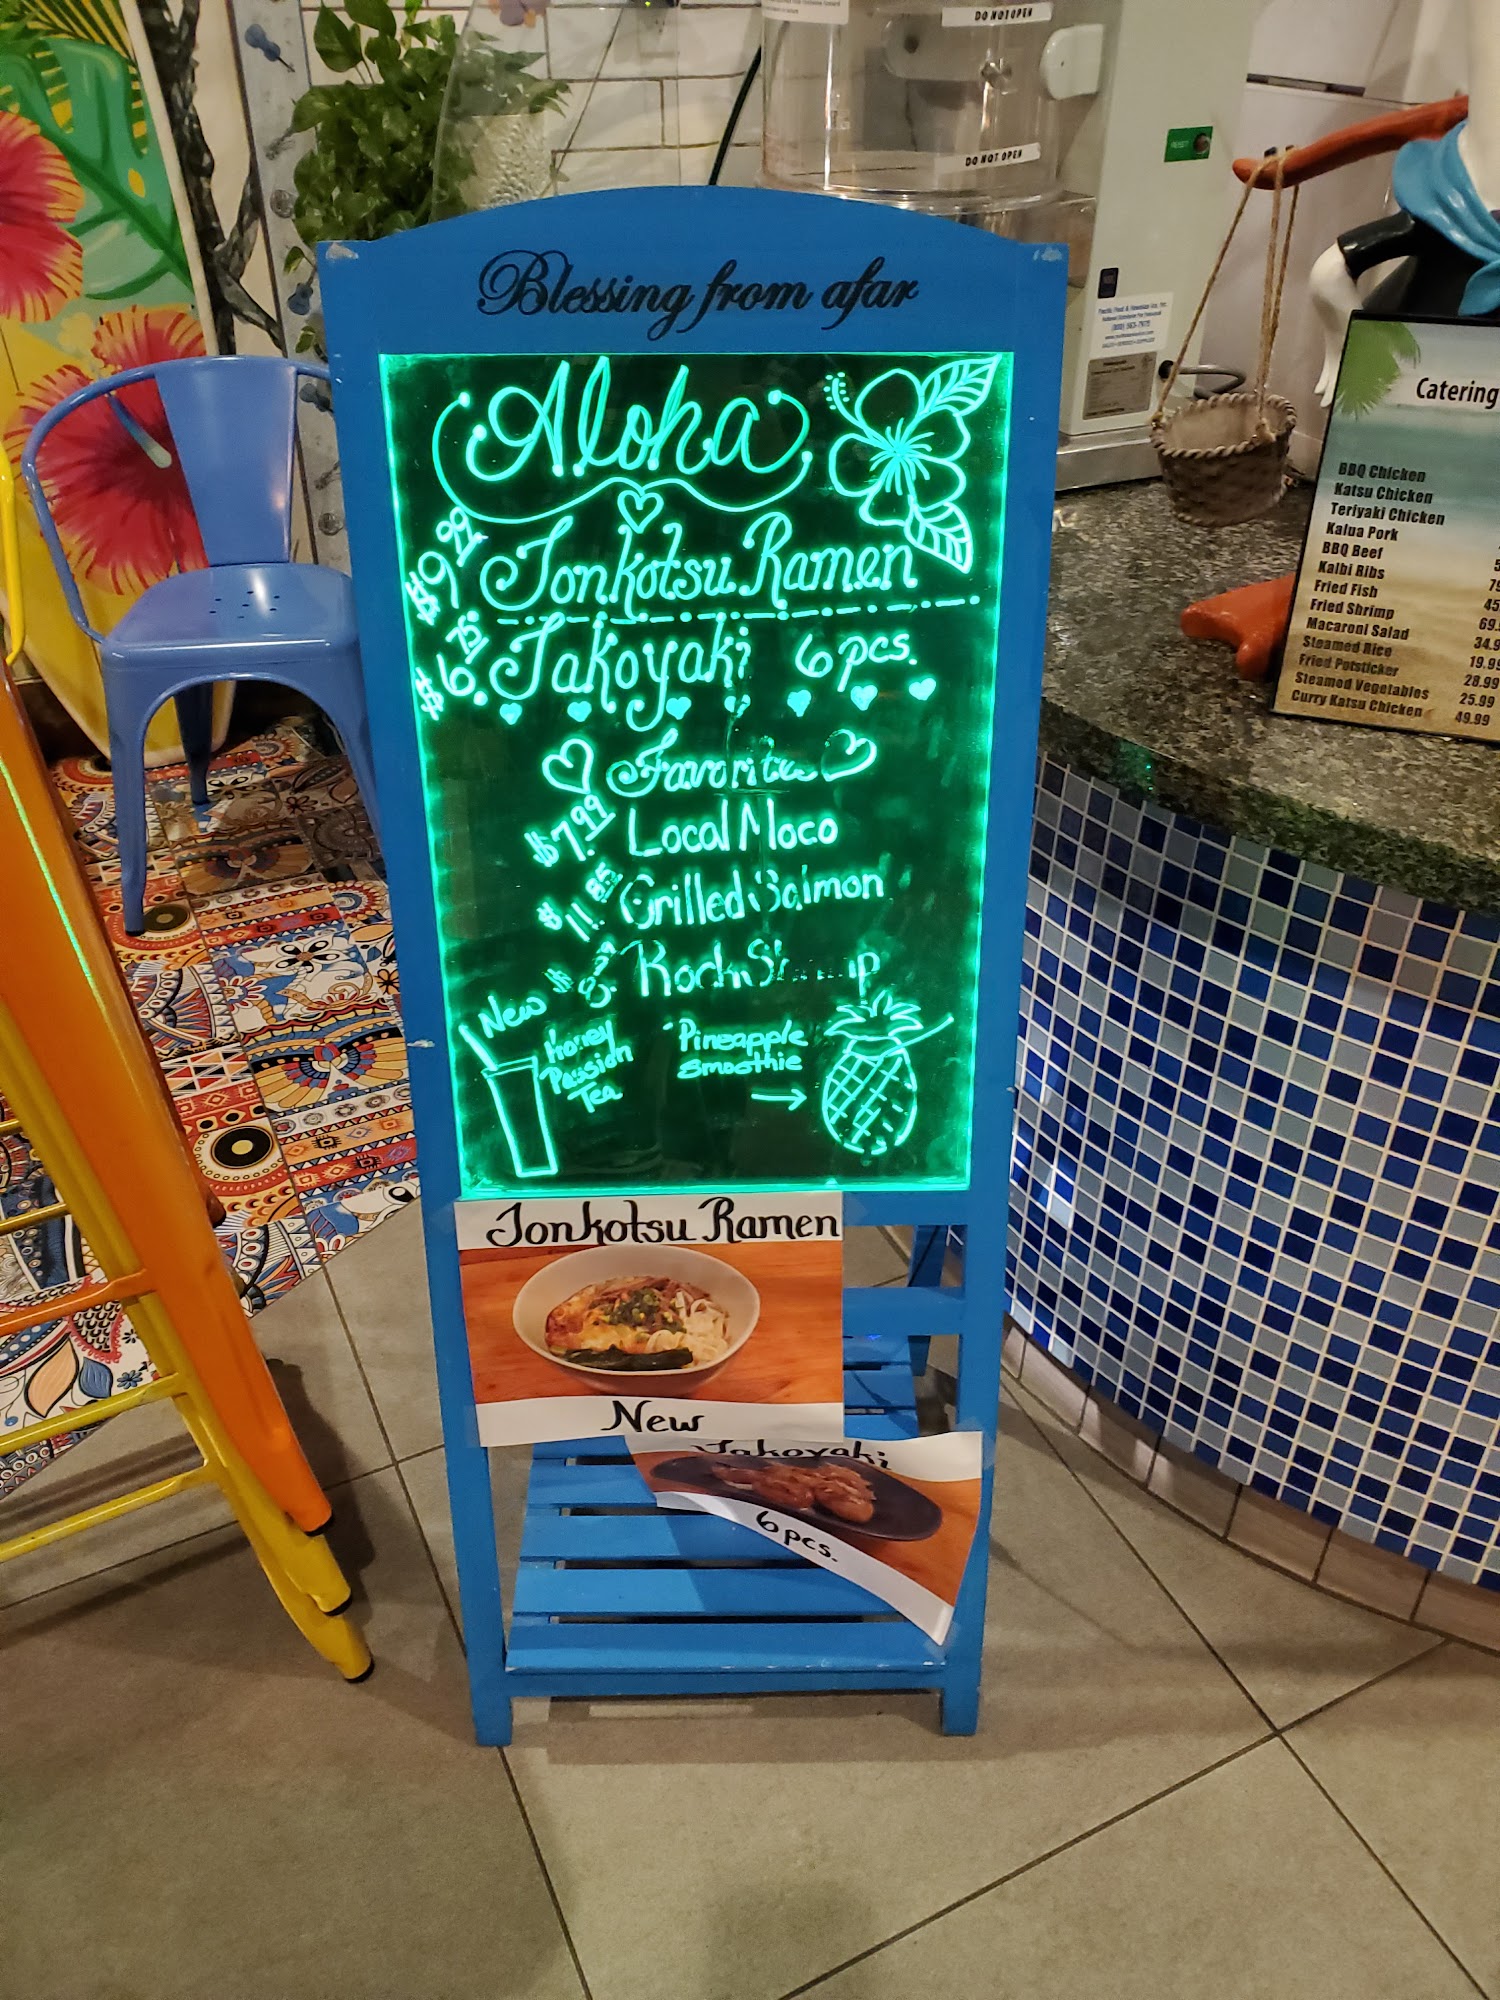 DO NOT OPEN
DO NOT OPEN
RESET
Blessing from afar
Aloha
$9.99 Tonkotsu Ramen
$6.75 Takoyaki 6 pcs.
Favorite
$7.99 Local Moco
$11.85 Grilled Salmon
Rock Shrimp
New
Honey
Passion
Tea
Pineapple
Smoothie
Tonkotsu Ramen
New
Takoyaki
6 pcs.
Catering
BBQ Chicken
Katsu Chicken
Teriyaki Chicken
Kalua Pork
BBQ Beef
Kalbi Ribs
Fried Fish
Fried Shrimp
Macaroni Salad
Steamed Rice
Fried Potsticker 28.99
Steamed Vegetables 25.99
Curry Katsu Chicken 49.99